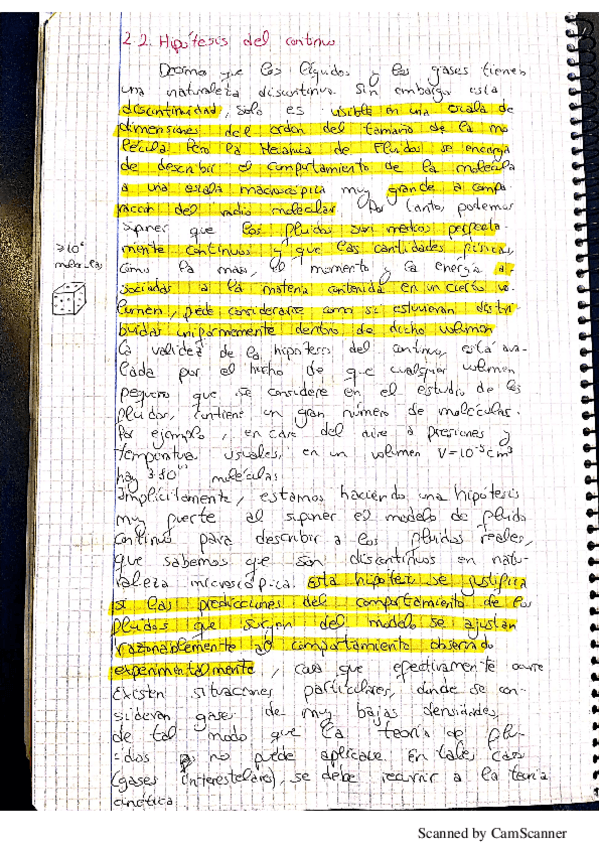 2.2. Hipótesis del continuo
Decimos que los líquidos y los gases tienen
una naturaleza discontinua. Sin embargo esta
discontinuidad, solo es visible en una escala de
dimensiones del orden del tamaño de la mo
lécula. Pero la Mecánica de Fluidos se encarga
de describir el comportamiento de la molécula
a una escala macroscópica muy grande al compa
ración del radio molecular. Por tanto, podemos
suponer que los fluidos son medios perfecta-
mente continuos y que las cantidades físicas,
como la masa, el momento y la energía a-
sociadas a la materia contenida en un cierto vo
lumen, puede considerarse como si estuvieran distri
buidas uniformemente dentro de dicho volumen
La validez de la hipótesis del continuo, está ava
lada por el hecho de que cualquier volumen
pequeño que se considere en el estudio de los
fluidos, contiene un gran número de moléculas.
Por ejemplo, en caso del aire a presiones y
temperatura usuales, en un volumen V=10⁻⁹cm³
hay moléculas
Implícitamente, estamos haciendo una hipótesis
muy fuerte al suponer el modelo de fluido
continuo para describir a los fluidos reales,
que sabemos que son discontinuos en natu-
raleza microscópica. Esta hipótesis se justifica
si las predicciones del comportamiento de los
fluidos que surgen del modelo se ajustan
razonablemente al comportamiento observado
experimentalmente, cosa que efectivamente ocurre
Existen situaciones particulares, donde se con-
sideran gases de muy bajas densidades,
de tal modo que la teoría de flu-
idos no puede aplicarse. En tales casos
(gases interestelares), se debe recurrir a la teoría
cinética.
moléculas
Scanned by CamScanner